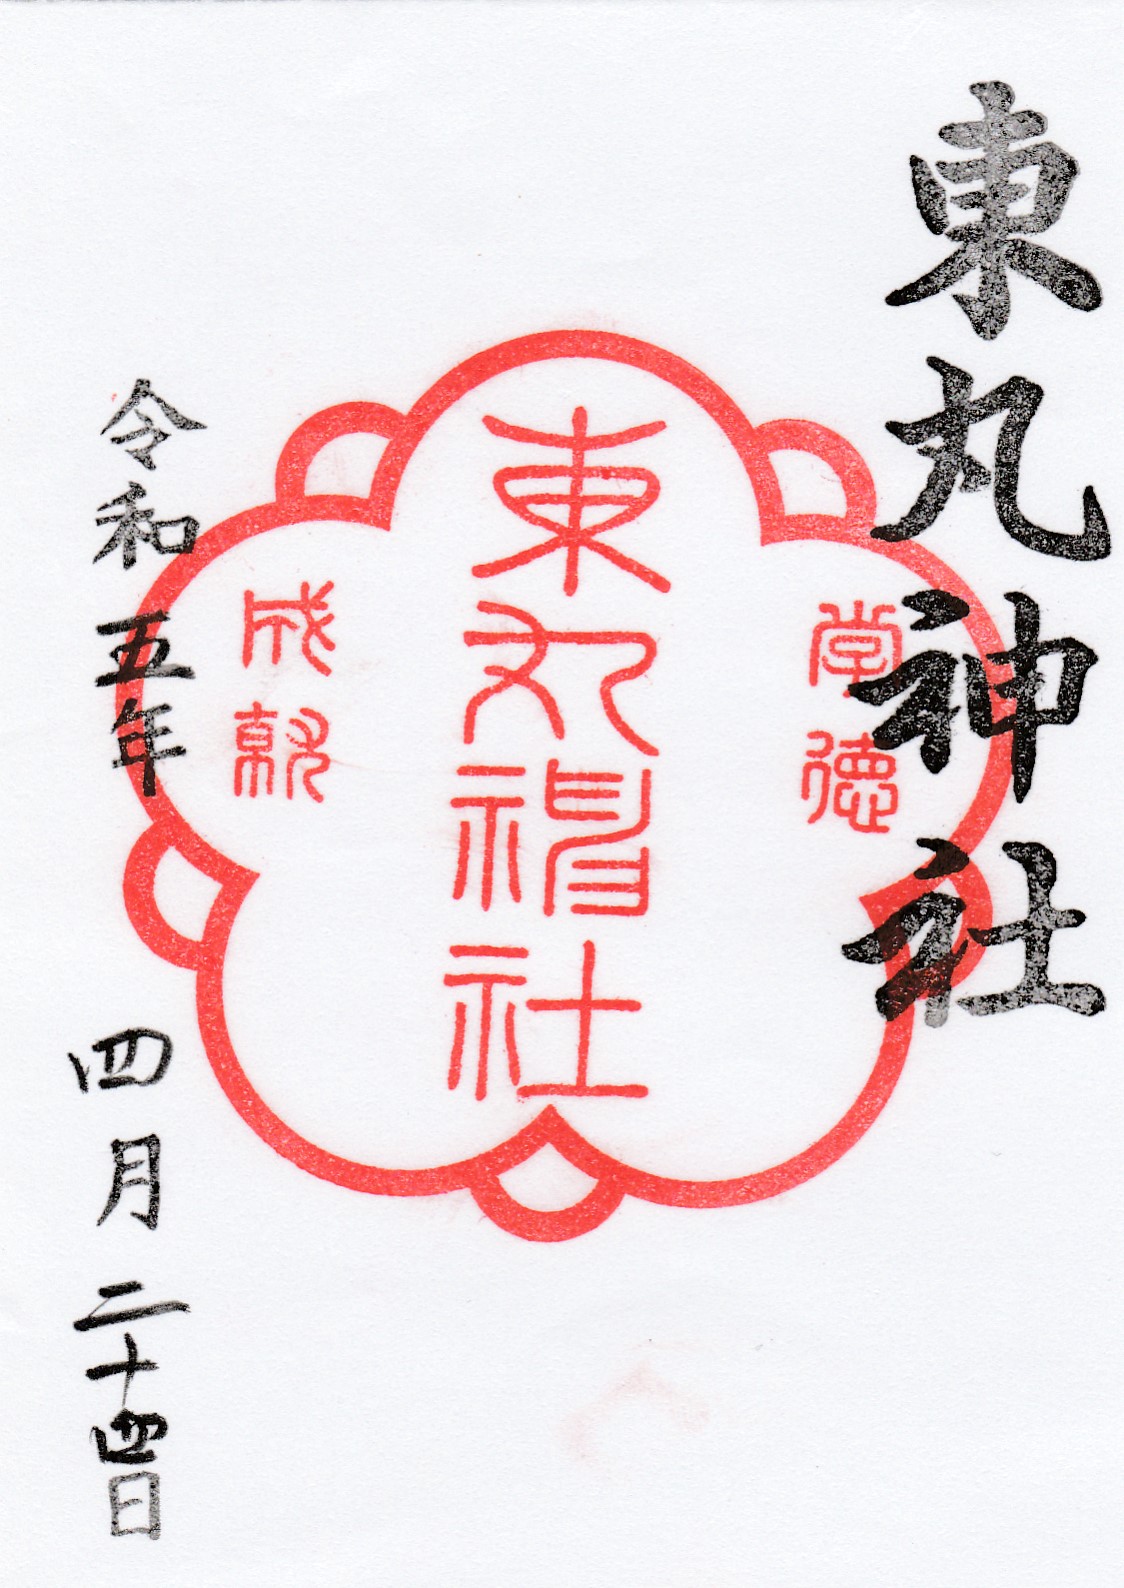 東丸神社
学徳
東丸神社
成就
令和五年四月二十四日